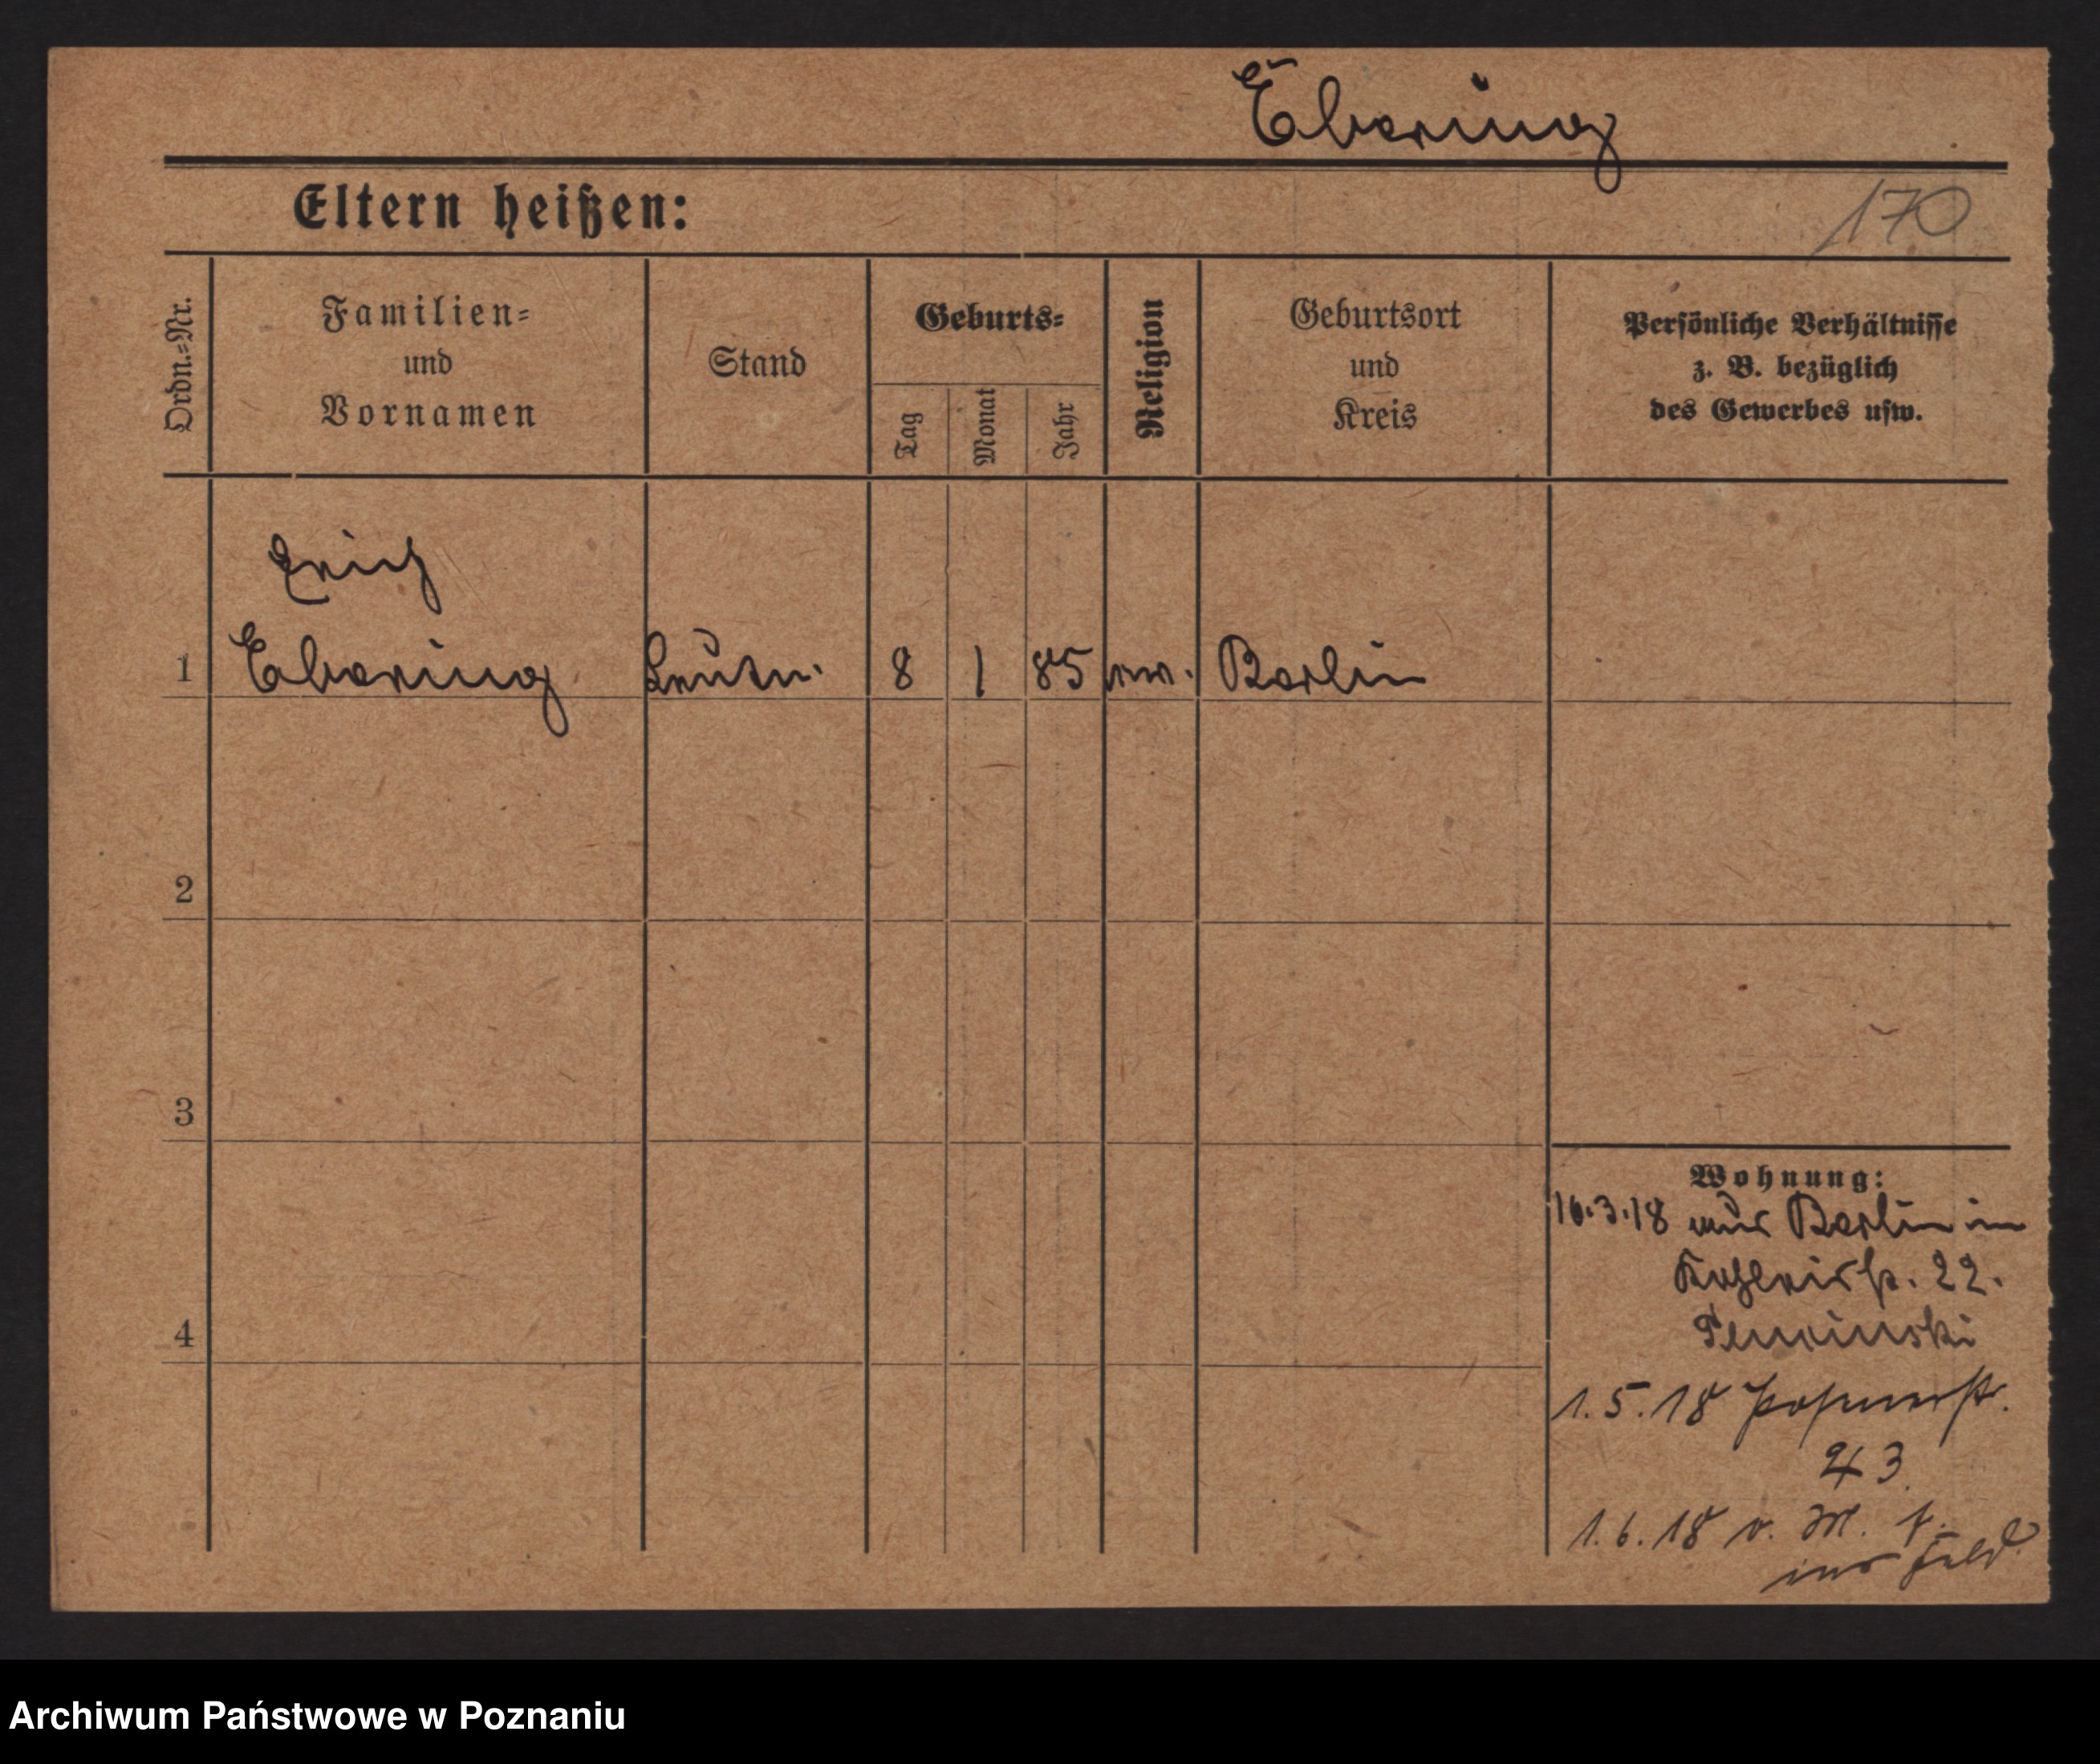 Ebering
Eltern heißen:
170
Ordn.=Nr.
Familien=
und
Vornamen
Stand
Geburts=
Tag
Monat
Jahr
Religion
Geburtsort
und
Kreis
Persönliche Verhältnisse
z. B. bezüglich
des Gewerbes usw.
Erich
1 Ebering Leutn. 8 1 85 Berlin
2
3
4
Wohnung:
16.3.18 aus Berlin in
22.
1.5.18 Posenerstr.
43
1.6.18 v. M. f.
ins Feld
Archiwum Państwowe w Poznaniu